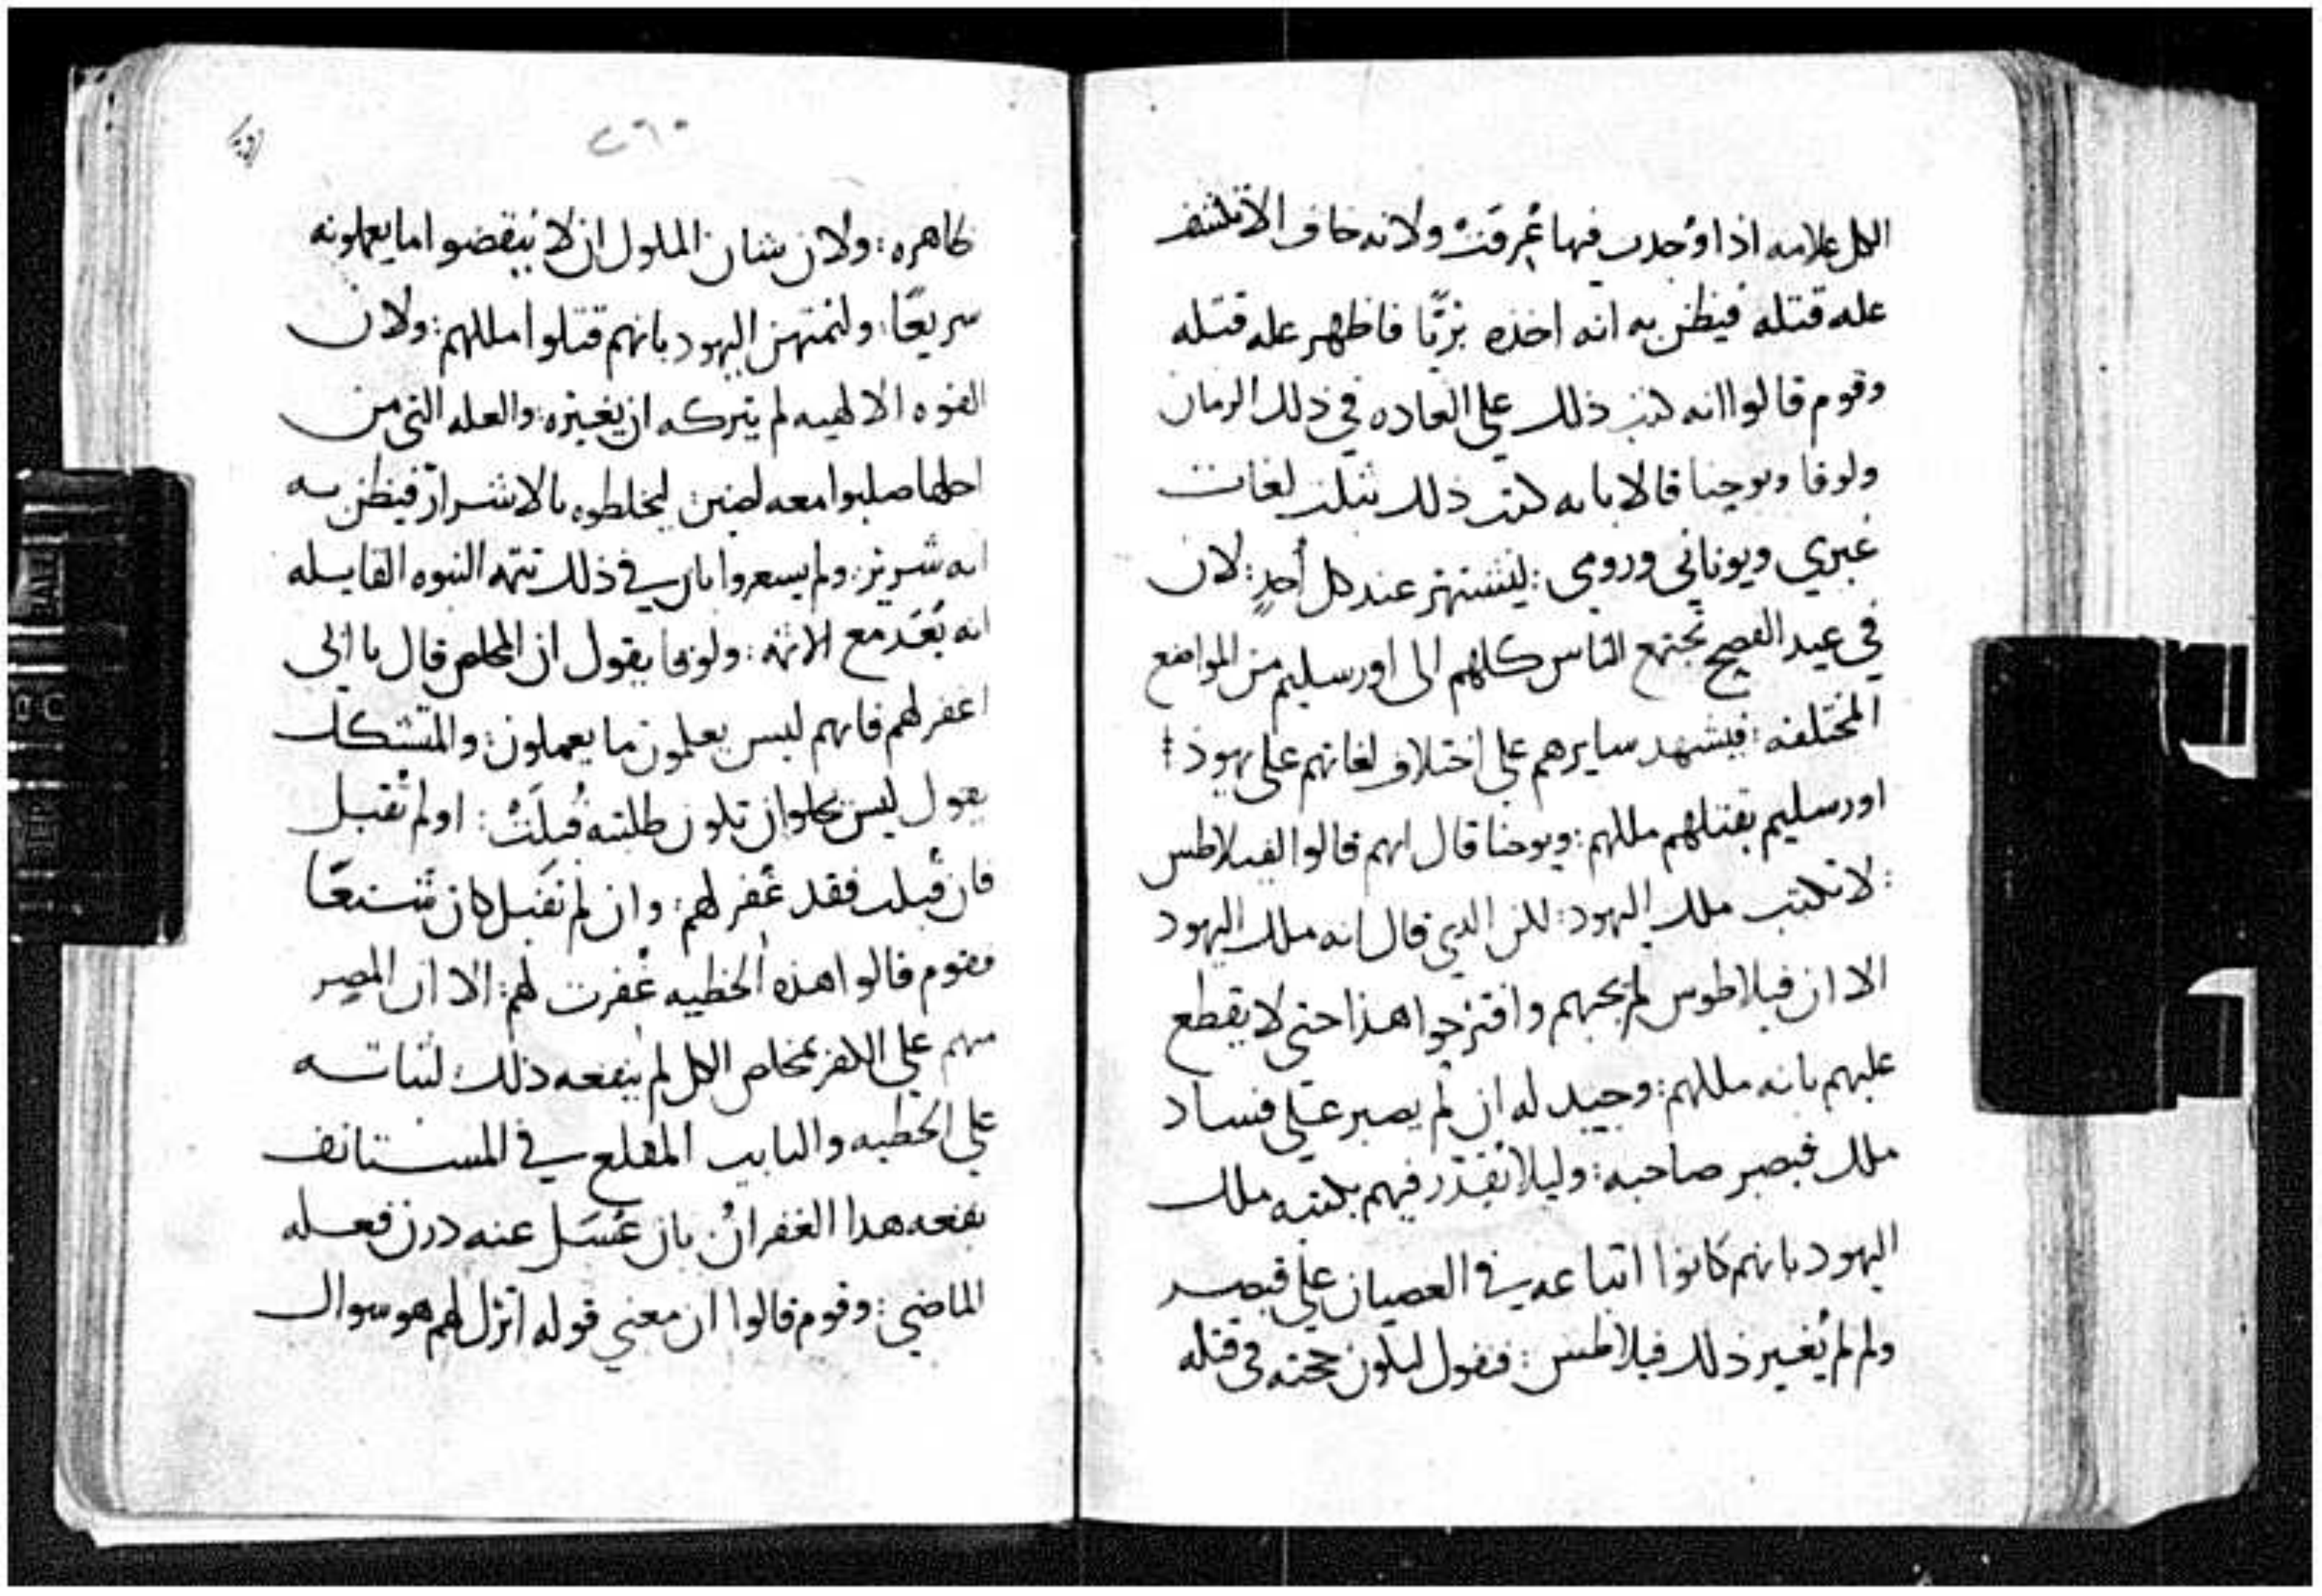 الكل علامه اذا وُجدت فيها عُرفَتْ ولانه خاف الا تنكشف
عله قتله فيظن به انه اخذه بريًا فاظهر عله قتله
وقوم قالوا انه كتب ذلك على العاده في ذلك الزمان
ولوقا ويوحنا قالا بانه كتب ذلك بثلث لغات
عبري ويوناني ورومي : ليشتهر عند كل أحدٍ : لان
في عيد الفصح تجتمع الناس كلهم الى اورسليم من المواضع
المختلفه : فيشهد سايرهم على اختلاف لغاتهم على يهود :
اورسليم بقتلهم ملكهم : ويوحنا قال انهم قالوا لفيلاطس
: لا تكتب ملك اليهود : لكن الذي قال انه ملك اليهود
الا ان فيلاطوس لم يجبهم واقترحوا هذا حتى لا يقطع
عليهم بانه ملكهم : وجيد له ان لم يصبر على فساد
ملك فيصبر صاحبه : وليلا يقدر فيهم بكتبه ملك
اليهود بانهم كانوا اتباعه في العصيان على قيصر
ولم لم يُغير ذلك فيلاطس : فنقول لتكون حجته في قتله
٢٦٠
ظاهره : ولان شان الملوك ان لا ينقضوا ما يعملونه
سريعًا : وليمتهن اليهود بانهم قتلوا ملكهم : ولان
القوه الالهيه لم يتركه ان يغيره : والعله التي من
اجلها صلبوا معه لصين : ليخلطوه بالاشرار فيظن به
انه شرير : ولم يشعروا بان في ذلك تتمه النبوه القايله
انه يُعَد مع الاثمه : ولوقا يقول ان المخلص قال يا ابي
اغفر لهم فانهم ليس يعلمون ما يعملون : والمتشكك
يقول ليس يخلوا ان تكون طلبته قُبلَتْ : او لم تُقبل
فان قُبلت فقد غُفر لهم : وان لم تقبل كان شنعًا
فقوم قالوا هذه الخطيه غُفرت لهم : الا ان المصر
منهم على الكفر بمخلص الكل لم ينفعه ذلك لثباته
على الخطيه والتايب المقلع في المستانف
ينفعه هذا الغفرانُ بان غسَل عنه درن فعله
الماضي : وقوم قالوا ان معنى قوله اترك لهم هو سوال